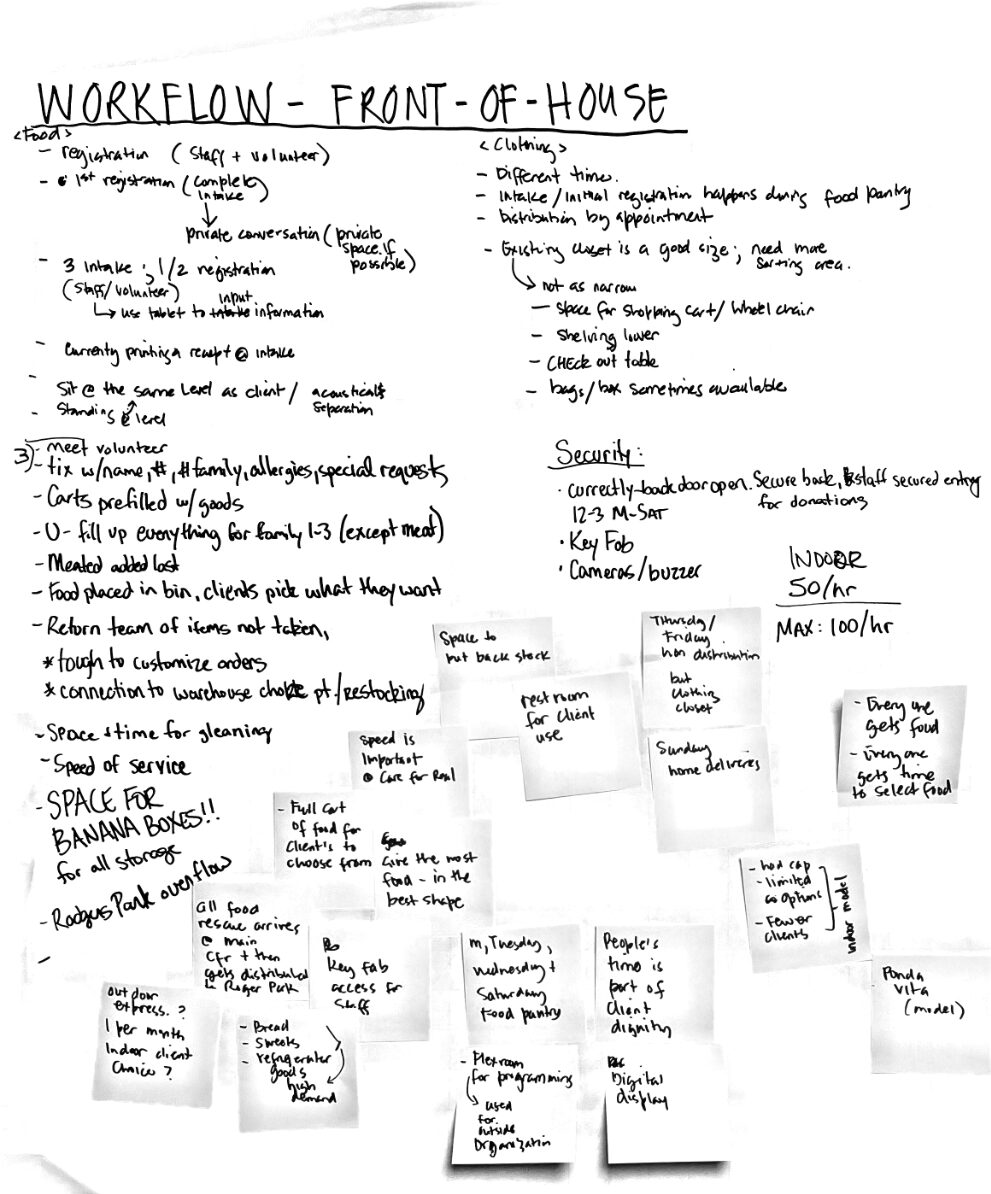 WORKFLOW - FRONT-OF-HOUSE
<Food>
- registration (Staff + volunteer)
- 1st registration (complete
intake)
private conversation (private
space if
possible)
- 3 intake; 1/2 registration
(Staff/volunteer)
input
↳ use tablet to intake information
- Currently printing a receipt @ intake
- Sit @ the same level as client / acoustical
separation
- Standing @ level
3) - meet volunteer
- tix w/name, #, # family, allergies, special requests
- Carts prefilled w/ goods
- U- fill up everything for family 1-3 (except meat)
- Meated added last
- Food placed in bin, clients pick what they want
- Return team of items not taken,
* tough to customize orders
* connection to warehouse choke pt / restocking
- Space + time for gleaning
- Speed of service
- SPACE FOR
BANANA BOXES!!
for all storage
- Rodgers Park overflow
-
<Clothing>
- Different times.
- Intake/Initial registration happens during food pantry
- Distribution by appointment
- Existing closet is a good size; need more
sorting area.
↳ not as narrow
- Space for shopping cart/ wheel chair
- Shelving lower
- CHECK out table
- bags/box sometimes available
Security:
· Currectly-back door open. Secure back, staff secured entry
12-3 M-SAT
for donations
· Key Fob
· Cameras/buzzer
INDOOR
50/hr
MAX: 100/hr
Space to
put back stock
restroom
for client
use
Thursday/
Friday
non distribution
but
clothing
closet
Sunday
home deliveries
- Everyone
gets food
- Everyone
gets time
to select food
Speed is
Important
@ Care for Real
- Full cart
of food for
client's to
choose from
Give the most
food - in the
best shape
- had cap
- limited
as options
- Fewer
clients
indoor model
all food
rescue arrives
@ main
cfr + then
gets distributed
to Roger Park
Key Fab
access for
staff
m, Tuesday,
wednesday +
Saturday
Food pantry
People's
time is
part of
client
dignity
Ponda
Vita
(model)
out door
express. ?
1 per month
Indoor client
choice?
- Bread
- Sweets
- refrigerater
goods
high
demand
- Flexroom
for programming
↳ used
for
outside
Organization
Digital
display